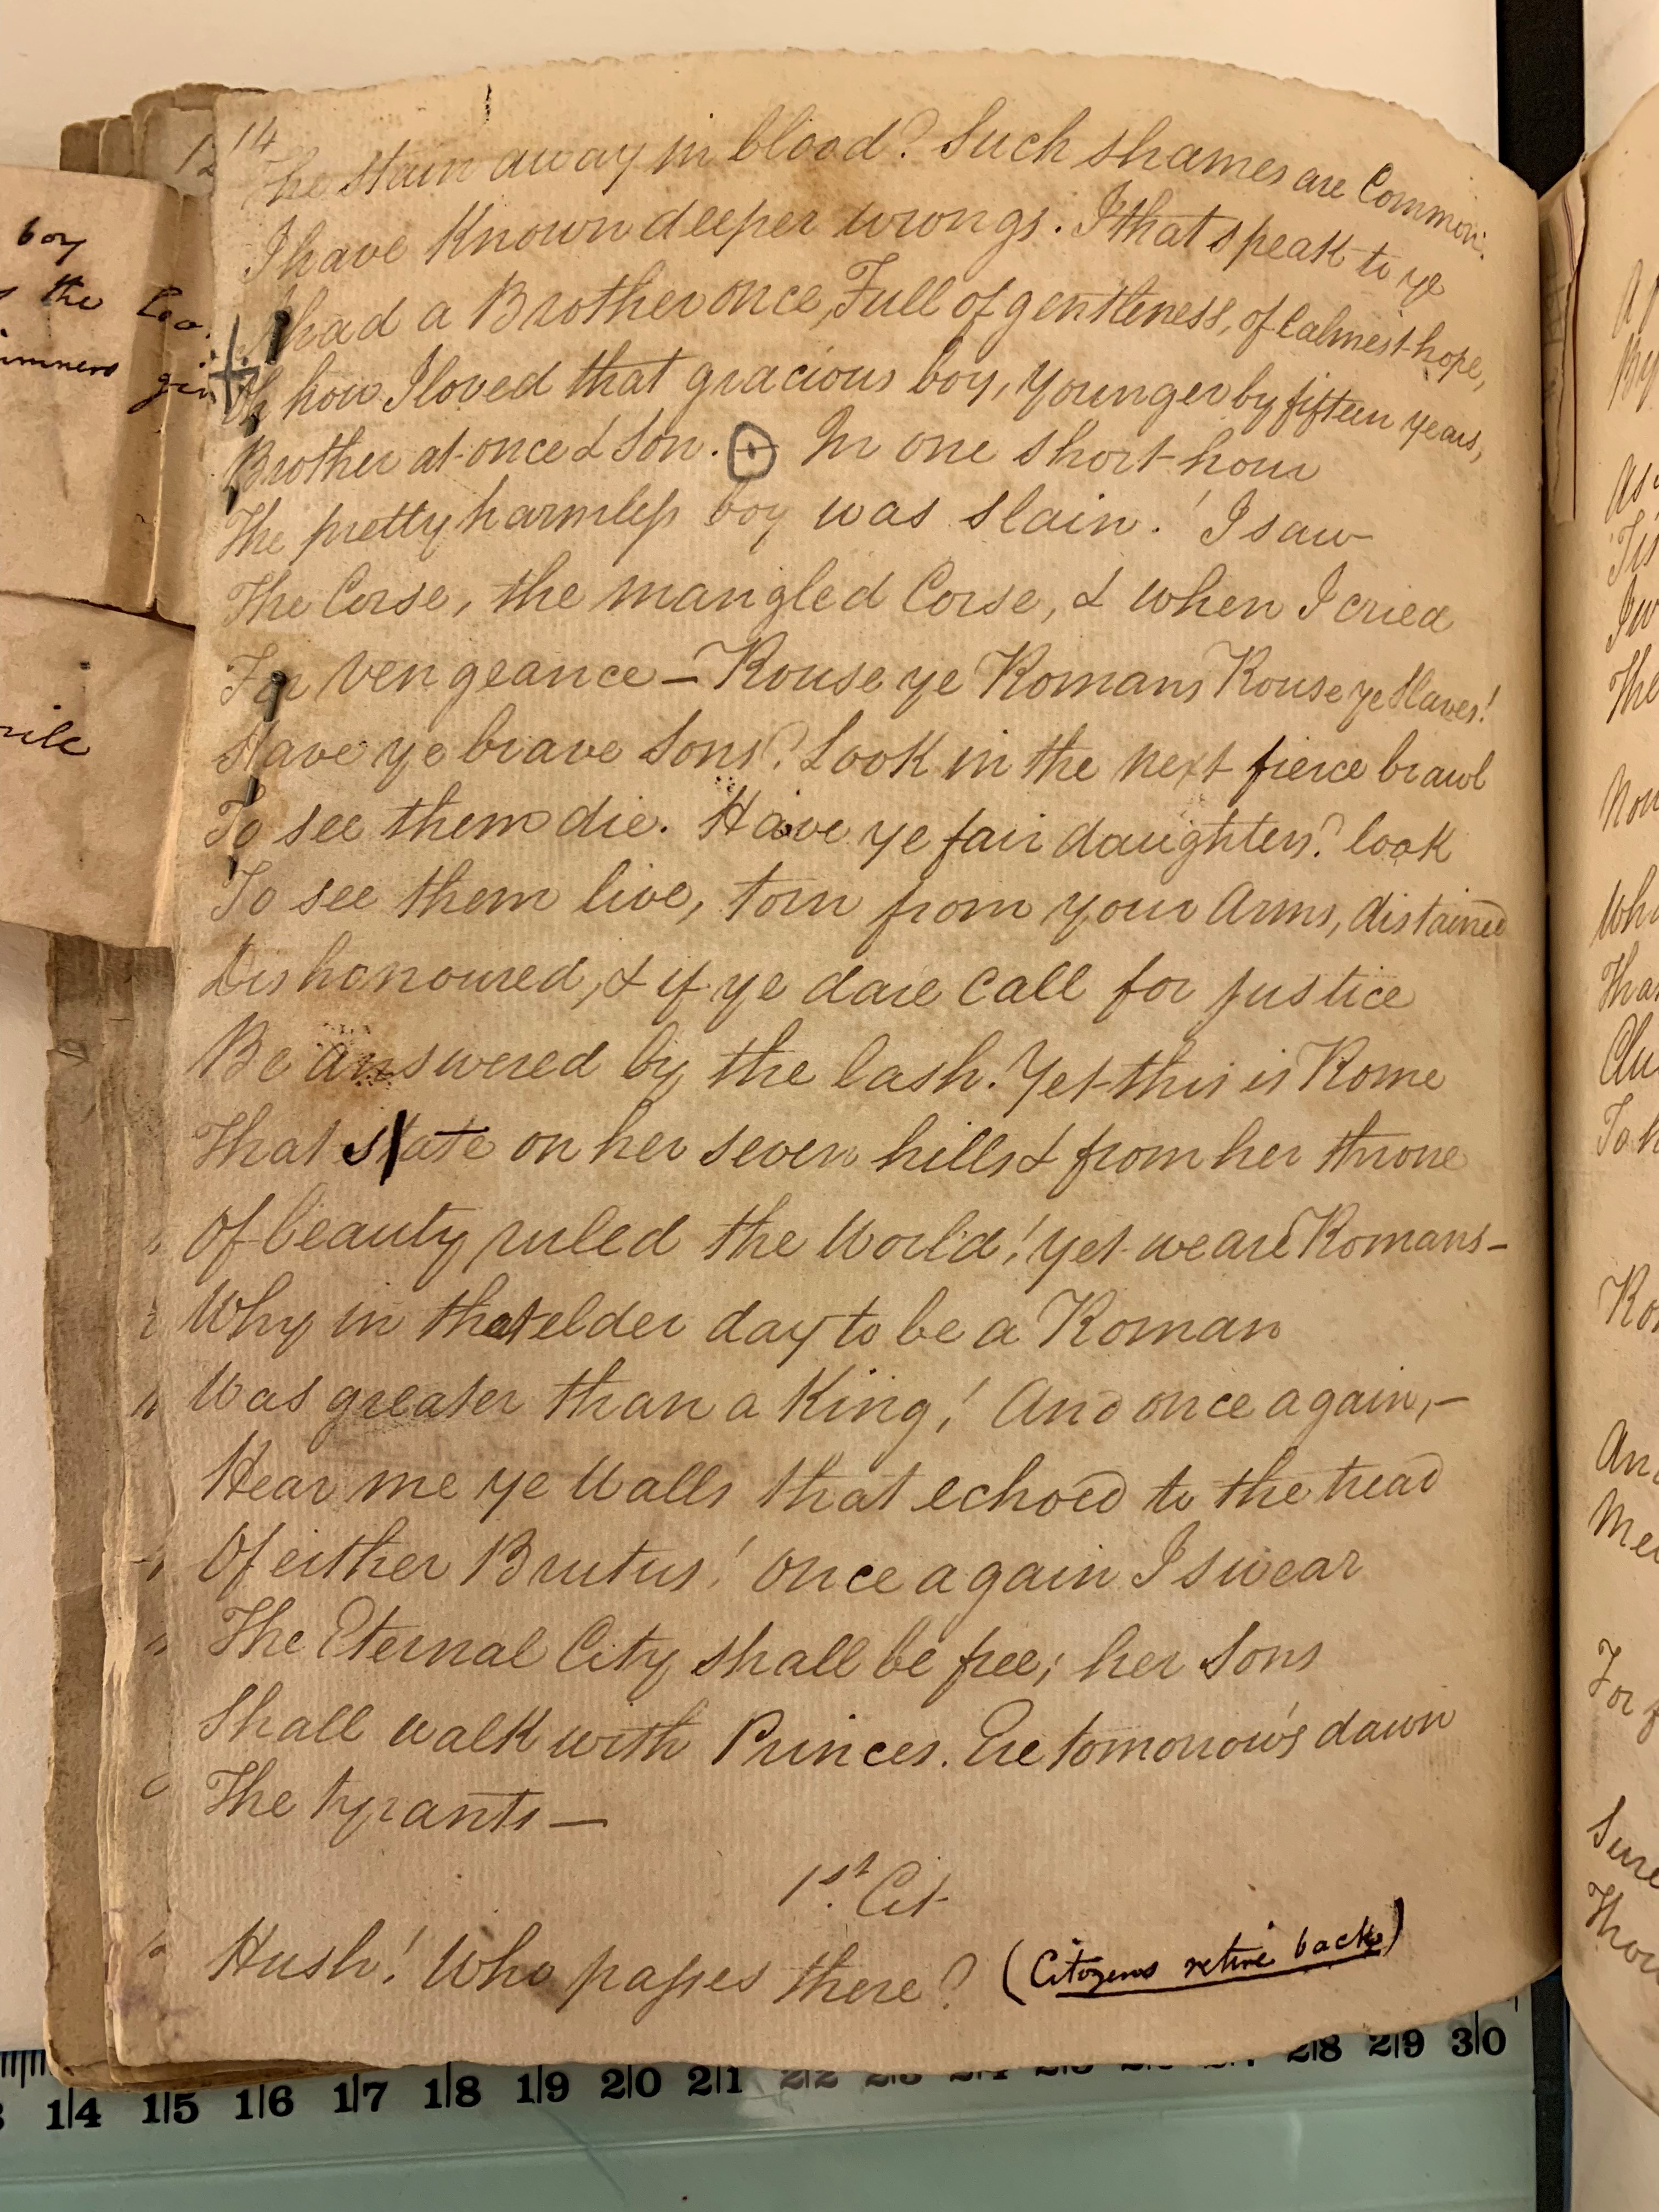 14
The stain away in blood? Such shames are Common.
I have Known deeper wrongs. I that speak to ye
I had a Brother once, Full of gentleness, of Calmest hope,
Oh how I loved that gracious boy, Younger by fifteen years,
Brother at once & Son. In one short hour
The pretty harmless boy was slain! I saw
The Corse, the mangled Corse, & when I cried
For vengeance – Rouse ye Romans Rouse ye Slaves!
Have ye brave Sons? Look in the next fierce brawl
To see them die. Have ye fair daughters? look
To see them live, torn from your Arms, distained
Dishonoured, & if ye dare Call for justice
Be answered by the lash! Yet this is Rome
That sate on her seven hills & from her throne
Of beauty ruled the World! yet we are Romans –
Why in that elder day to be a Roman
Was greater than a King! And once again, –
Hear me ye Walls that echoed to the tread
Of either Brutus! Once again I swear
The Eternal City shall be free; her Sons
Shall walk with Princes. Ere tomorrow's dawn
The tyrants —
1st. Cit
Hush! Who passes there? (Citizens retire back)
boy
the
12
14 15 16 17 18 19 20 21 22 28 29 30